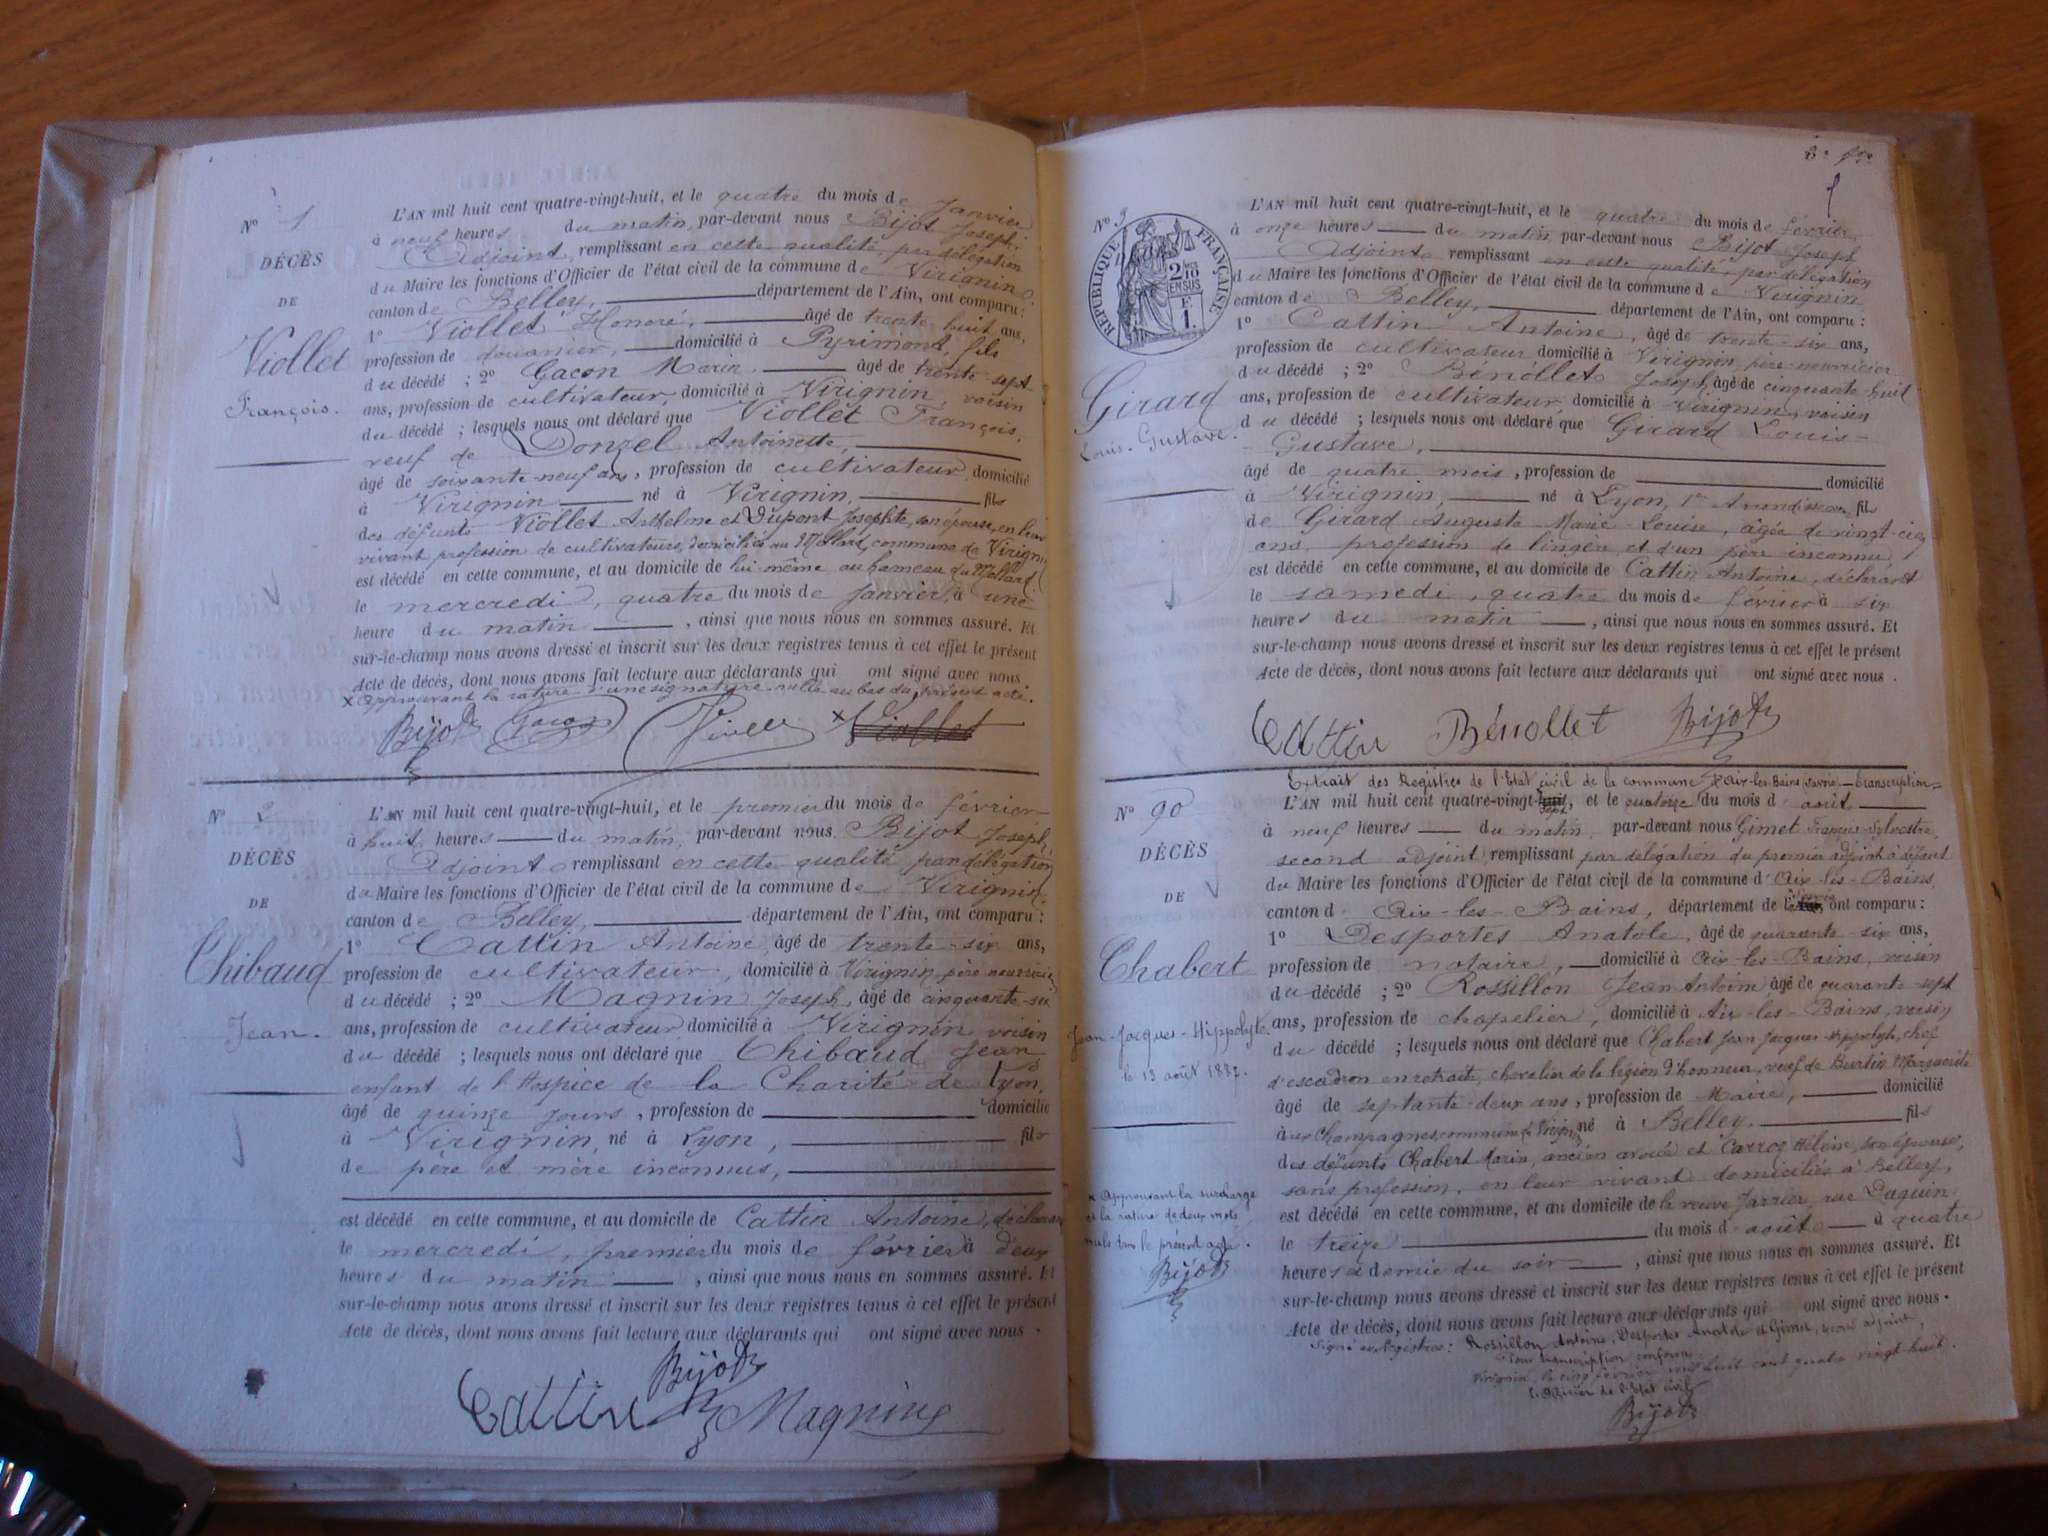 N° 1
DÉCÈS
DE
Viollet
François.
L'AN mil huit cent quatre-vingt-huit, et le quatre du mois de Janvier
à neuf heures du matin, par-devant nous Bijot Joseph,
Adjoint, remplissant en cette qualité, par délégation
du Maire les fonctions d'Officier de l'état civil de la commune de Virignin
canton de Belley, département de l'Ain, ont comparu :
1° Viollet Honoré, âgé de trente huit ans,
profession de douanier, domicilié à Pyrimont, fils
du décédé ; 2° Gacon Marin. âgé de trente-sept
ans, profession de cultivateur, domicilié à Virignin, voisin
du décédé ; lesquels nous ont déclaré que Viollet François,
veuf de Donzel Antoinette,
âgé de soixante-neuf ans, profession de cultivateur, domicilié
à Virignin né à Virignin, fils
des défunts Viollet Anthelme et Dupont Josephte, son épouse, en leur
vivant profession de cultivateurs, domiciliés au Mollard, commune de Virignin
est décédé en cette commune, et au domicile de lui-même au hameau du Mollard
le mercredi, quatre du mois de Janvier, à une
heure du matin, ainsi que nous nous en sommes assuré. Et
sur-le-champ nous avons dressé et inscrit sur les deux registres tenus à cet effet le présent
Acte de décès, dont nous avons fait lecture aux déclarants qui ont signé avec nous
x Approuvant la rature d'une signature nulle au bas du présent acte.
Bijot Gacon x Viollet
N° 2
DÉCÈS
DE
Chibaud
Jean.
L'AN mil huit cent quatre-vingt-huit, et le premier du mois de février
à huit heures du matin, par-devant nous Bijot Joseph,
Adjoint remplissant en cette qualité par délégation
du Maire les fonctions d'Officier de l'état civil de la commune de Virignin
canton de Belley, département de l'Ain, ont comparu :
1° Cattin Antoine, âgé de trente-six ans,
profession de cultivateur, domicilié à Virignin, père nourricier
du décédé ; 2° Magnin Joseph, âgé de cinquante-six
ans, profession de cultivateur domicilié à Virignin voisin
du décédé ; lesquels nous ont déclaré que Chibaud Jean
enfant de l'Hospice de la Charité de Lyon,
âgé de quinze jours, profession de domicilié
à Virignin, né à Lyon, fils
de père et mère inconnus,
est décédé en cette commune, et au domicile de Cattin Antoine, déclarant
le mercredi, premier du mois de février à deux
heures du matin, ainsi que nous nous en sommes assuré. Et
sur-le-champ nous avons dressé et inscrit sur les deux registres tenus à cet effet le présent
Acte de décès, dont nous avons fait lecture aux déclarants qui ont signé avec nous.
Bijot
Cattin Magnin
N° 3
RÉPUBLIQUE FRANÇAISE
2 10
EN SUS
F
1.
Girard
Louis-Gustave.
L'AN mil huit cent quatre-vingt-huit, et le quatre du mois de février
à onze heures du matin, par-devant nous Bijot Joseph
Adjoint remplissant en cette qualité, par délégation
du Maire les fonctions d'Officier de l'état civil de la commune de Virignin
canton de Belley, département de l'Ain, ont comparu :
1° Cattin Antoine, âgé de trente-six ans,
profession de cultivateur domicilié à Virignin, père nourricier
du décédé ; 2° Bénollet Joseph, âgé de cinquante-huit
ans, profession de cultivateur, domicilié à Virignin, voisin
du décédé ; lesquels nous ont déclaré que Girard Louis-
Gustave,
âgé de quatre mois, profession de domicilié
à Virignin, né à Lyon, 1er Arrondissem, fils
de Girard Auguste-Marie-Louise, âgée de vingt-cinq
ans, profession de lingère et d'un père inconnu,
est décédé en cette commune, et au domicile de Cattin Antoine, déclarant
le samedi, quatre du mois de février à six
heures du matin, ainsi que nous nous en sommes assuré. Et
sur-le-champ nous avons dressé et inscrit sur les deux registres tenus à cet effet le présent
Acte de décès, dont nous avons fait lecture aux déclarants qui ont signé avec nous.
Cattin Bénollet Bijot
N° 90
DÉCÈS
DE
Chabert
Jean-Jacques-Hippolyte
le 13 août 1887.
x Approuvant la surcharge
et la rature de deux mots
nuls dans le présent acte.
Bijot
Extrait des Registres de l'Etat civil de la commune d'Aix-les-Bains Savoie - transcription =
L'AN mil huit cent quatre-vingt-sept, et le quatorze du mois d'août
à neuf heures du matin, par-devant nous Gimet François-Sylvestre,
second adjoint, remplissant par délégation du premier adjoint à défaut
du Maire les fonctions d'Officier de l'état civil de la commune d'Aix-les-Bains,
canton d'Aix-les-Bains, département de la Savoie, ont comparu :
1° Desportes Anatole, âgé de quarante-six ans,
profession de notaire, domicilié à Aix-les-Bains, voisin
du décédé ; 2° Rossillon Jean Antoine âgé de quarante-sept
ans, profession de chapelier, domicilié à Aix-les-Bains, voisin
du décédé ; lesquels nous ont déclaré que Chabert Jean-Jacques-Hippolyte, chef
d'escadron en retraite, chevalier de la légion d'honneur, veuf de Burtin Marguerite
âgé de septante-deux ans, profession de Maire, domicilié
aux Champagnes, commune de Virignin né à Belley. fils
des défunts Chabert Marin, ancien avoué et Carroz Hélène, son épouse,
sans profession, en leur vivant domiciliés à Belley,
est décédé en cette commune, et au domicile de la veuve Jarrier, rue Daquin
le treize du mois d'août à quatre
heures et demie du soir, ainsi que nous nous en sommes assuré. Et
sur-le-champ nous avons dressé et inscrit sur les deux registres tenus à cet effet le présent
Acte de décès, dont nous avons fait lecture aux déclarants qui ont signé avec nous.
Signé aux Registres : Rossillon Antoine, Desportes Anatole et Gimet, second adjoint,
Pour transcription conforme
Virignin, le cinq février mil huit cent quatre vingt huit.
L'Officier de l'Etat civil
Bijot